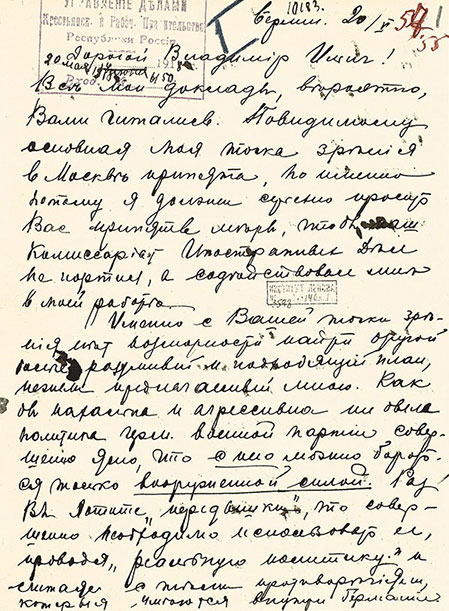 УПРАВЛЕНIЕ ДѢЛАМИ
Крестьянск. и Рабоч. Правительства
Республики Россiи
Берлин. 20/V
Дорогой Владимiр Ильич!
Всѣ мои доклады, вѣроятно,
Вами читались. Повидимому
основная моя точка зрѣнiя
в Москвѣ принята, но именно
потому я должен срочно просить
Вас принять мѣры, чтобы наш
Комиссарiат Иностранных Дѣл
не портил, а содѣйствовал мнѣ
в моей работѣ.
Именно с Вашей точки зрѣ-
нiя нѣт возможности найти другой
болѣе разумный и подходящiй план,
нежели предлагаемый мною. Как
бы нахальна и агрессивна ни была
политика герм. военной партiи совер-
шенно ясно, что с нею можно бороть-
ся только вооруженной силой. Раз
Вы хотите „передышки", то совер-
шенно необходимо использовать ее,
проводя „реальную политику" и
считаясь с тѣми противорѣчiями,
которыя имеются внутри Германии